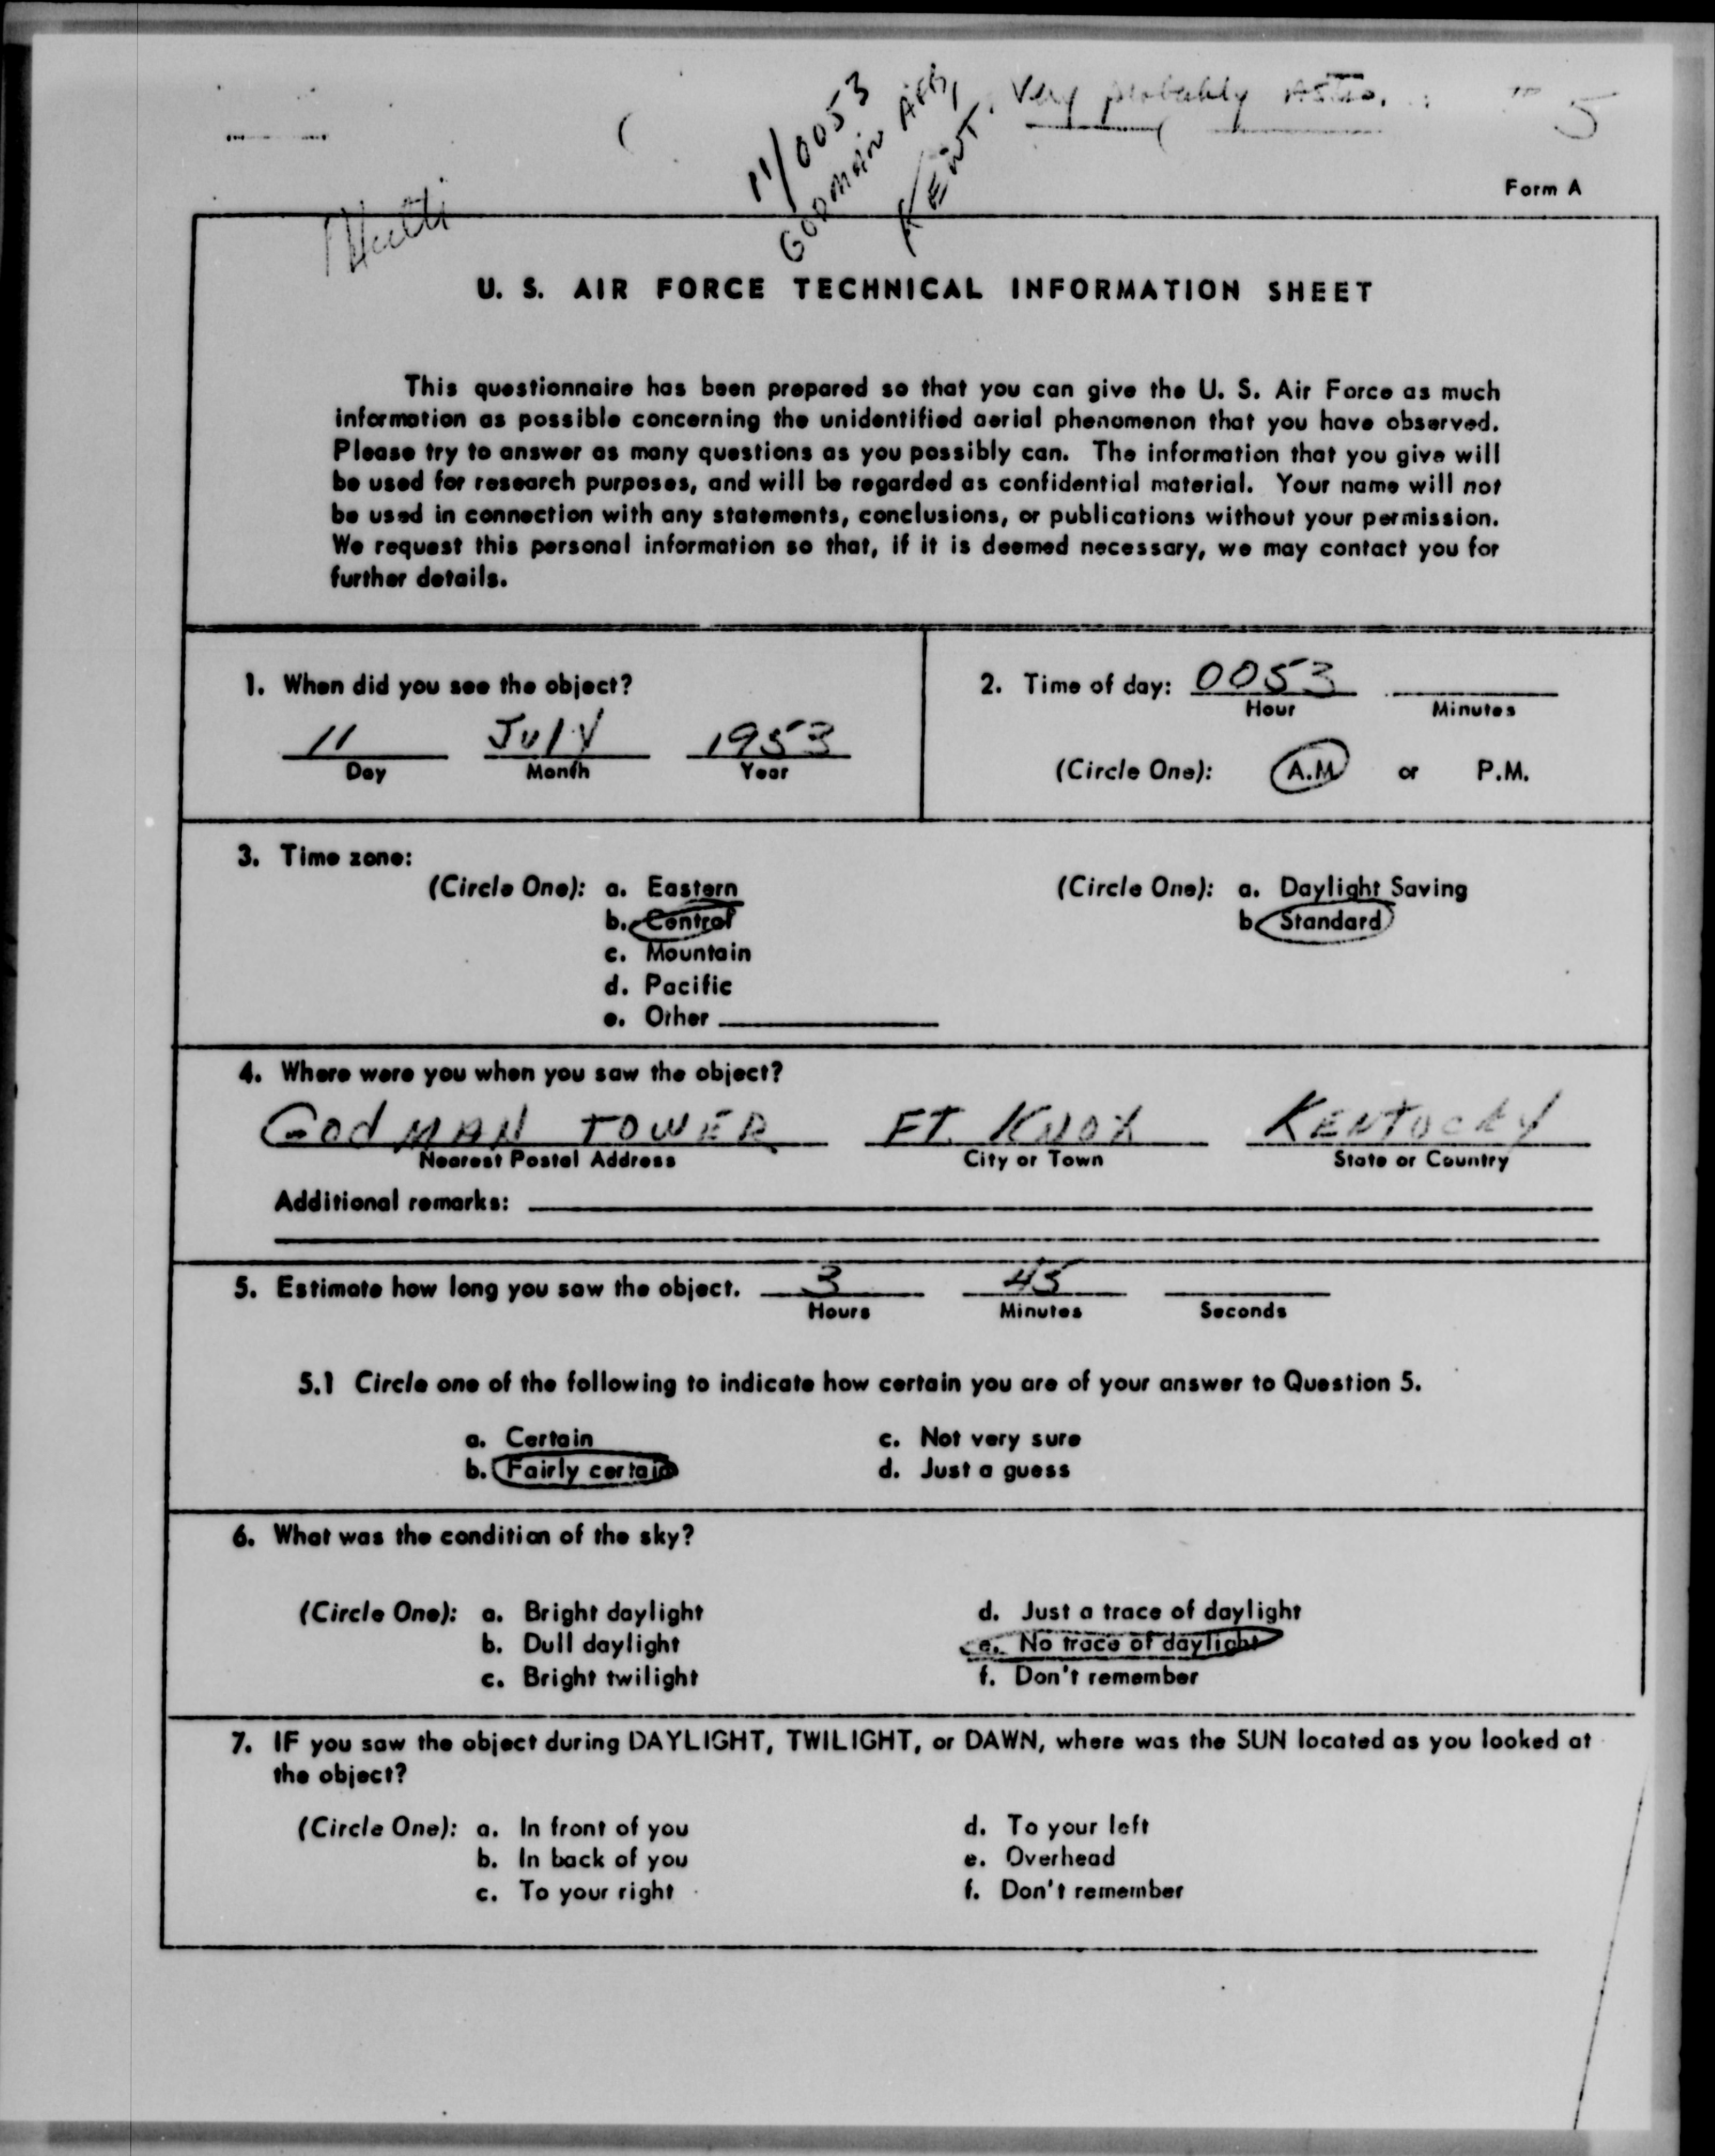 11/0053
GODMAN AFB,
KENT.
Very probably Astro.
5
Form A
U. S. AIR FORCE TECHNICAL INFORMATION SHEET
This questionnaire has been prepared so that you can give the U. S. Air Force as much
information as possible concerning the unidentified aerial phenomenon that you have observed.
Please try to answer as many questions as you possibly can. The information that you give will
be used for research purposes, and will be regarded as confidential material. Your name will not
be used in connection with any statements, conclusions, or publications without your permission.
We request this personal information so that, if it is deemed necessary, we may contact you for
further details.
1. When did you see the object?
11 JULY 1953
Day Month Year
2. Time of day: 0053
Hour Minutes
(Circle One): A.M or P.M.
3. Time zone:
(Circle One): a. Eastern
b. Central
c. Mountain
d. Pacific
e. Other
(Circle One): a. Daylight Saving
b. Standard
4. Where were you when you saw the object?
GODMAN TOWER FT. KNOX KENTUCKY
Nearest Postal Address City or Town State or Country
Additional remarks:
5. Estimate how long you saw the object. 3 45
Hours Minutes Seconds
5.1 Circle one of the following to indicate how certain you are of your answer to Question 5.
a. Certain c. Not very sure
b. Fairly certain d. Just a guess
6. What was the condition of the sky?
(Circle One): a. Bright daylight d. Just a trace of daylight
b. Dull daylight e. No trace of daylight
c. Bright twilight f. Don't remember
7. IF you saw the object during DAYLIGHT, TWILIGHT, or DAWN, where was the SUN located as you looked at
the object?
(Circle One): a. In front of you d. To your left
b. In back of you e. Overhead
c. To your right f. Don't remember